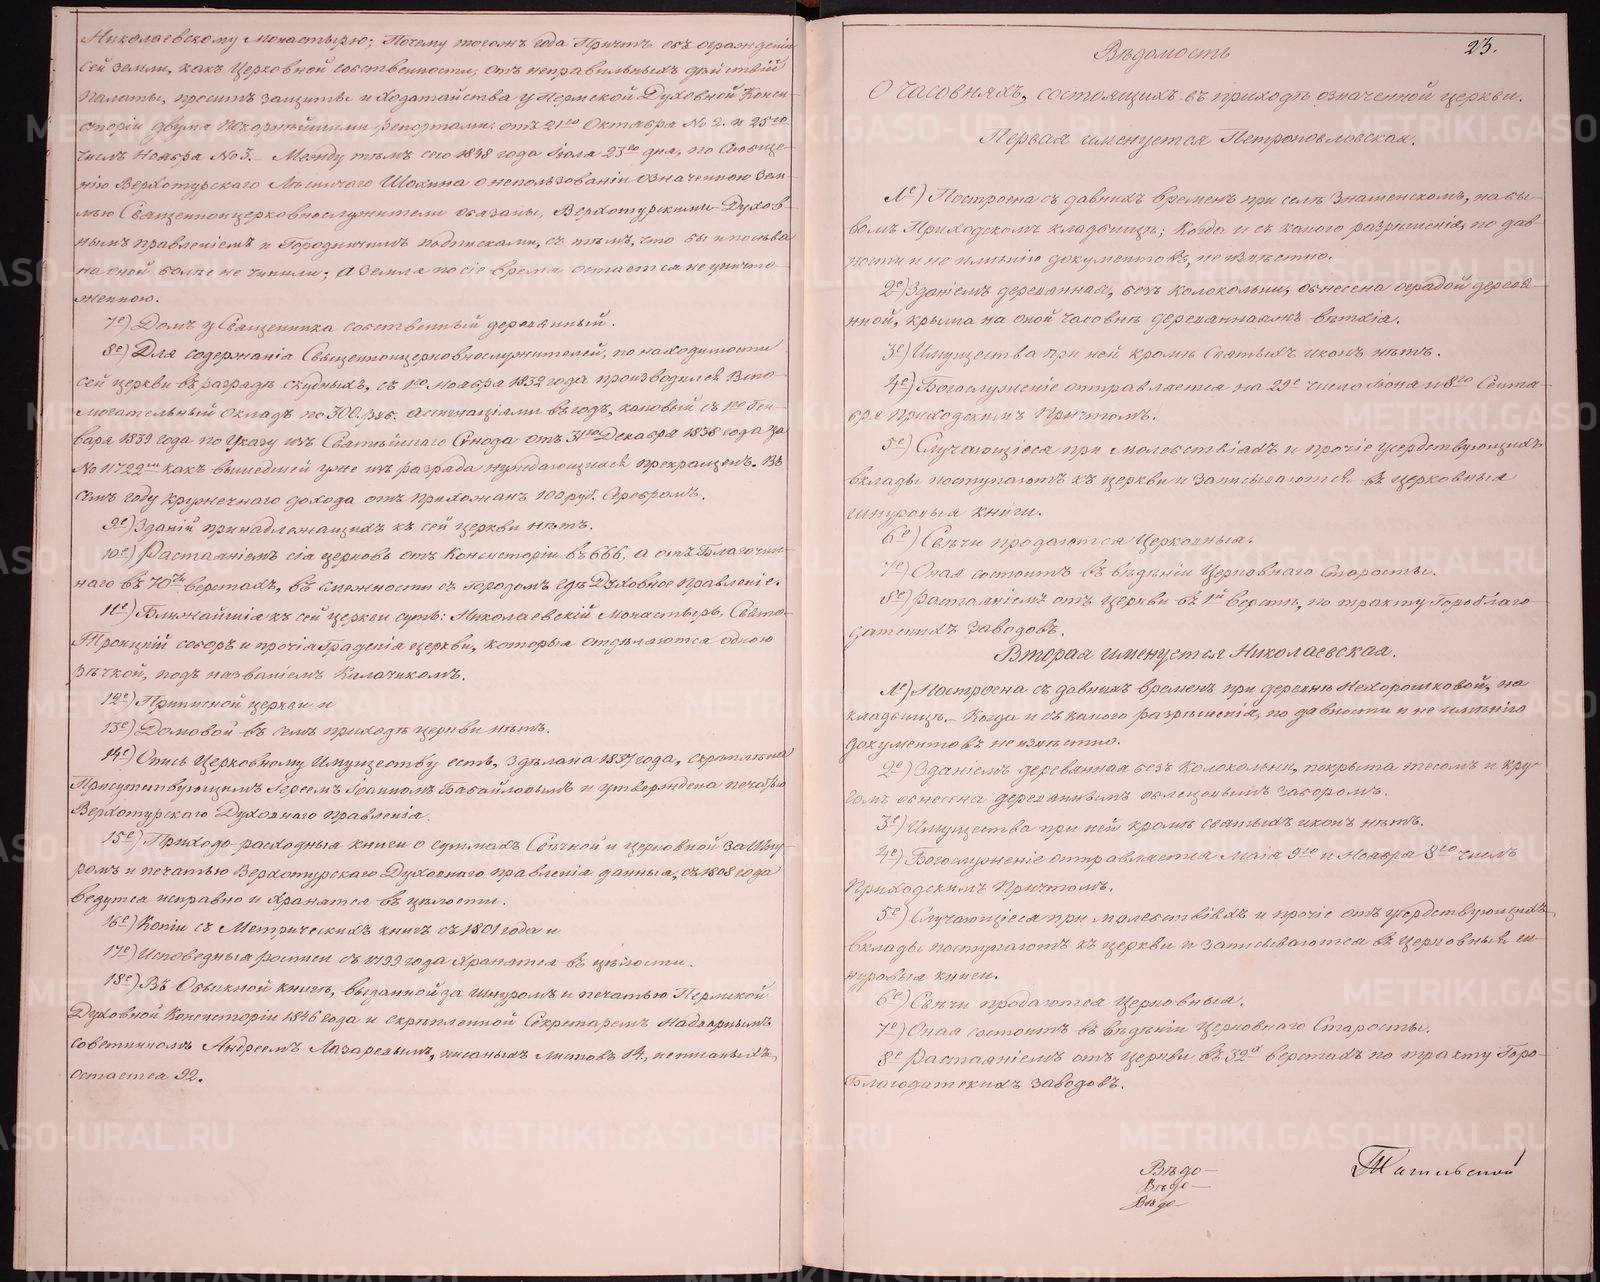 Николаевскому Монастырю; Почему тогожъ года Причтъ объ огражденіи
сей земли, какъ Церковной собственности, отъ неправильныхъ дѣйствій
Палаты, проситъ защиты и ходатайства у Пермской Духовной Конси-
сторіи двумя покорнѣйшими репортами: отъ 21го Октября № 2. и 25го
числъ Ноября № 3. Между тѣмъ сего 1848 года Іюля 23го дня, по Сообще-
нію Верхотурскаго Лѣсничаго Шохина о непользованіи означенною зем-
лею Священноцерковнослужители обязаны, Верхотурскими Духов-
нымъ правленіемъ и Городничимъ подписками, съ тѣмъ, что бы и посѣва
на оной болѣе не чинили; а земля по сіе время остается не уничто-
женною.
7е) Домъ у Священника собственный деревянный.
8е) Для содержанія Священноцерковнослужителей, по находимости
сей церкви въ разрядѣ скудныхъ, съ 1го Ноября 1832 года производился Вспо-
могательный Окладъ по 300. руб. ассигнаціями въ годъ, каковый съ 1го Ген-
варя 1839 года по Указу изъ Святѣйшаго Сѵнода отъ 31го Декабря 1838 года за
№ 11722мъ какъ вышедшей уже изъ разряда нуждающихся прекращенъ. Въ
семъ году кружечнаго дохода отъ прихожанъ 100 руб. Серебромъ.
9е) Зданій принадлежащихъ къ сей церкви нѣтъ.
10е) Растаяніемъ сія церковь отъ Консисторіи въ 666, а отъ Благочин-
наго въ 70ти верстахъ, въ смежности съ городомъ гдѣ Духовное Правленіе.
11е) Ближайшія къ сей церкви суть: Николаевскій Монастырь, Свято-
Троицкій соборъ и прочія Градскія церкви, которыя отдѣляются одною
рѣчкой, подъ названіемъ Калачикомъ.
12е) Приписной церкви и
13е) Домовой въ семъ приходѣ церкви нѣтъ.
14е) Опись Церковному Имуществу есть, здѣлана 1837 года, скрѣплена
Присутствующимъ Іереемъ Іоанномъ Бабайловымъ и утверждена печатью
Верхотурскаго Духовнаго Правленія.
15е) Приходо-расходныя книги о суммахъ Свѣчной и церковной за Шну-
ромъ и печатью Верхотурскаго Духовнаго правленія данныя, съ 1808 года
ведутся исправно и хранятся въ цѣлости.
16е) Копіи съ Метрическихъ книгъ съ 1801 года и
17е) Исповедныя росписи съ 1799 года хранятся въ цѣлости.
18е) Въ Обыскной книгѣ, выданной за шнуромъ и печатью Пермской
Духовной Консисторіи 1846 года и скрѣпленной Секретаремъ Надворнымъ
совѣтникомъ Андреемъ Лазаревымъ, писаныхъ листовъ 14, неписаныхъ
остается 92.
23.
Вѣдомость
О часовняхъ, состоящихъ въ приходѣ означенной церкви.
Первая именуется Петропавловская.
1е) Построена съ давнихъ временъ при селѣ Знаменскомъ, на бы-
вомъ Приходскомъ кладбищѣ; Когда и съ какого разрѣшенія, по дав-
ности и не имѣнію документовъ, не извѣстно.
2е) Зданіемъ деревянная, безъ колокольни, обнесена оградой деревя-
нной, крыша на оной часовнѣ деревянная жъ вѣтхія.
3е) Имущества при ней кромѣ Святыхъ иконъ нѣтъ.
4е) Богослуженіе отправляется на 29е число Іюня и 8го Сентя-
бря Приходскимъ Причтомъ.
5е) Случающіеся при молебствіяхъ и прочіе усердствующихъ
вклады поступаютъ къ церкви и записываются въ церковныя
шнуровыя книги.
6е) Свѣчи продаются Церковныя.
7е) Оная состоитъ въ вѣдѣніи Церковнаго Старосты.
8е) Растаяніемъ отъ церкви въ 1й верстѣ, по тракту Гороблаго-
датскихъ Заводовъ.
Вторая именуется Николаевская.
1е) Построена съ давнихъ временъ при деревнѣ Нехорошковой, на
кладбищѣ. Когда и съ какого разрѣшенія, по давности и не имѣнію
документовъ неизвѣстно.
2е) Зданіемъ деревянная безъ колокольни, покрыта тесомъ и кру-
гомъ обнесена деревяннымъ заборомъ.
3е) Имущества при ней кромѣ святыхъ иконъ нѣтъ.
4е) Богослуженіе отправляется Маія 9го и Ноября 8го числъ
Приходскимъ Причтомъ.
5е) Случающіеся при молебствіяхъ и прочіе отъ усердствующихъ
вклады поступаютъ къ церкви и записываются въ Церковныя ш-
нуровыя книги.
6е) Свѣчи продаются Церковныя.
7е) Оная состоитъ въ вѣдѣніи Церковнаго Старосты.
8е Растаяніемъ отъ Церкви въ 32х верстахъ по тракту Горо-
Благодатскихъ Заводовъ.
Вѣдо-
Вѣдо-
Вѣдо-
METRIKI.GASO-URAL.RU